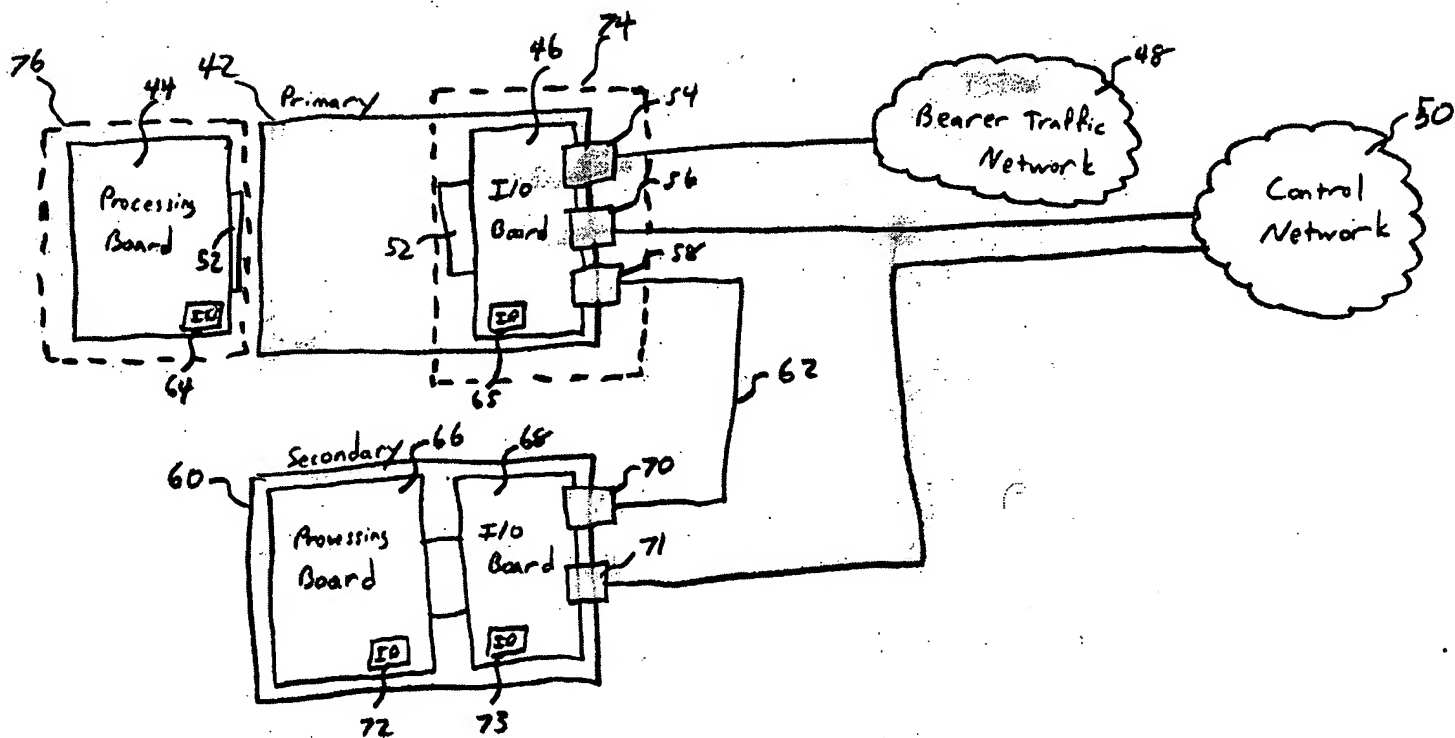 74
76
44
42
Primary
46
54
48
Bearer Traffic
Network
50
56
Control
Network
Processing
Board
I/O
Board
52
52
58
ID
ID
64
65
62
Secondary
66
68
60
70
Processing
Board
I/O
Board
71
ID
ID
72
73